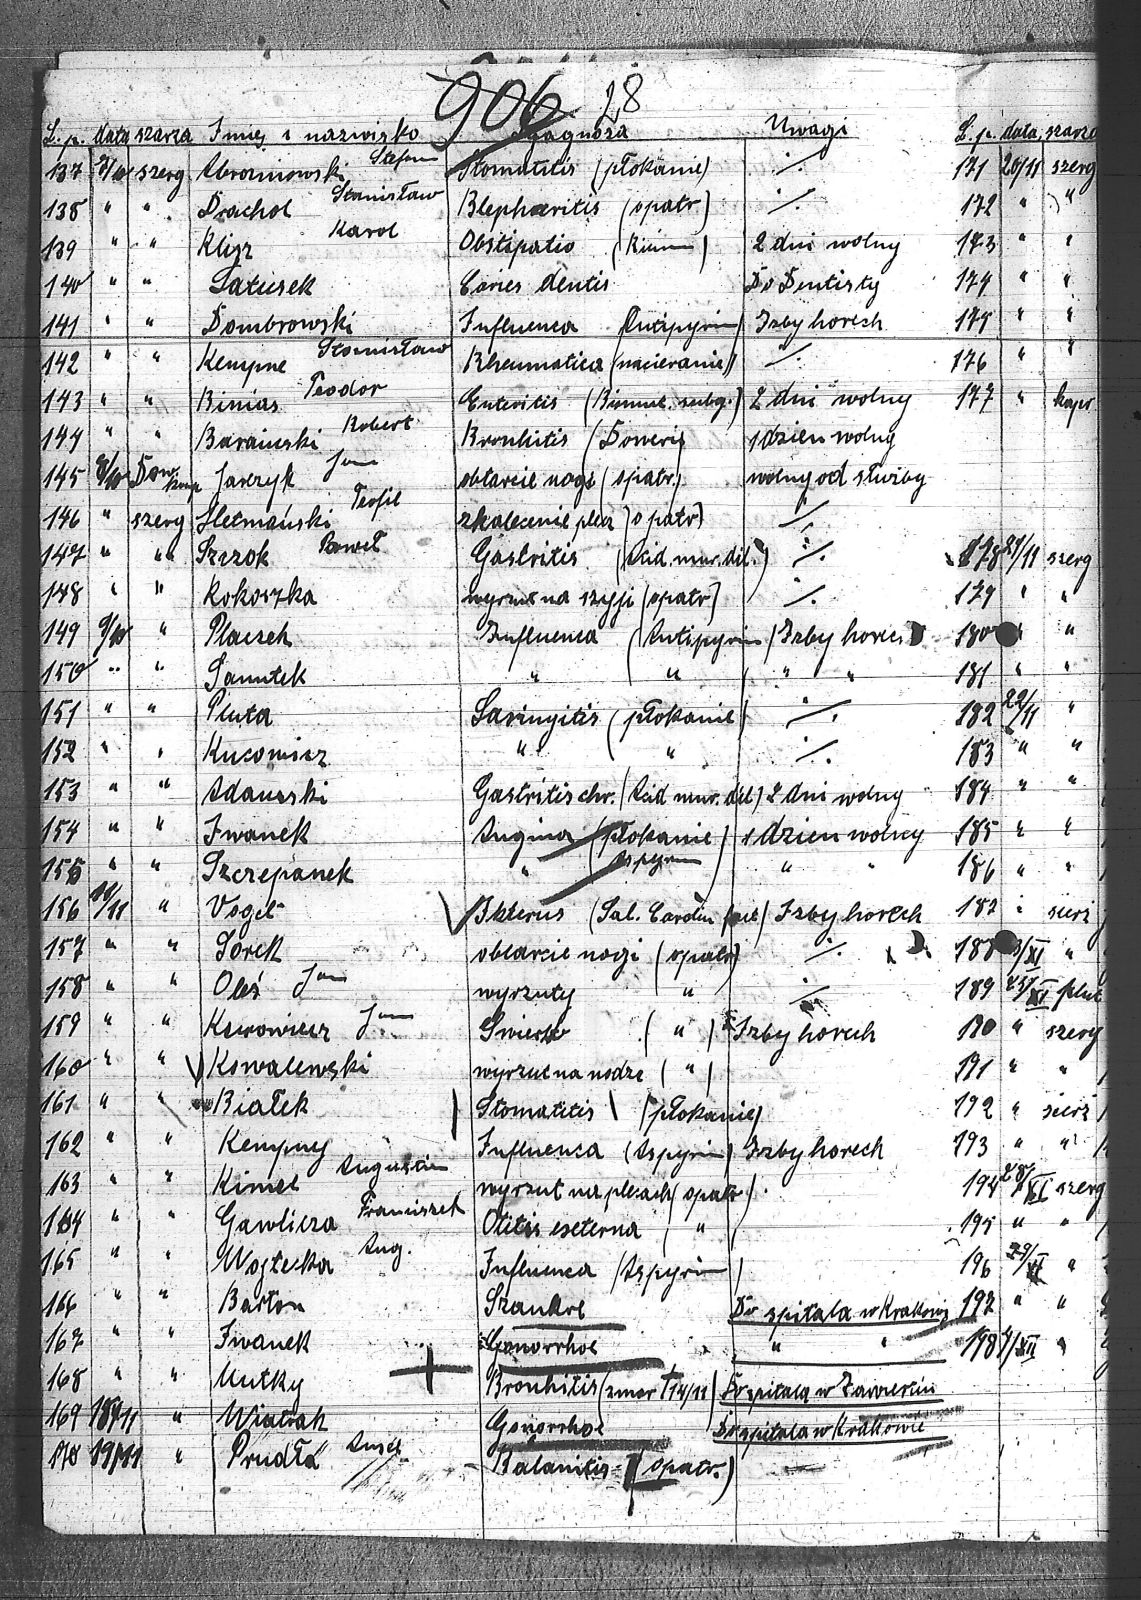 906 28
L. p. data szarża Imię i nazwisko Diagnoza Uwagi L. p. data szarża
137 szerg Stefan Stomatitis (płokanie) ·/. 171 20/11 szerg
138 " " Drachol Stanisław Blepharitis (opatr) ·/. 172 " "
139 " " Klisz Karol Obstipatio 2 dni wolny 173 " "
140 " " Latusek Caries dentis Do Dentisty 174 " "
141 " " Dombrowski Influenca (Antipyrin) Izby horech 175 " "
142 " " Kempne Stanisław Rheumatica (nacieranie) ·/. 176 " "
143 " " Binias Teodor Enteritis 2 dni wolny 177 " kapr
144 " " Barański Robert Bronhitis (Doweri) 1 dzien wolny
145 Jarzyk Jan obtarcie nogi (opatr.) wolny od służby
146 " szerg Hetmański Teofil skalecenie (opatr) ·/.
147 " " Szczok Paweł Gastritis (Acid. mur. dil.) ·/. 178 21/11 szerg
148 " " Kokoszka wyrzut na szyji (opatr) ·/. 179 " "
149 9/10 " Placzek Influenca (Antipyrin) Izby horech 180 " "
150 " " " " " " 181 " "
151 " " Pluta Laringitis (płokanie) ·/. 182 22/11 "
152 " " Kucowicz " " ·/. 183 " "
153 " " Adamski Gastritis chr. (Acid mur. dil) 2 dni wolny 184 " "
154 " " Iwanek Angina (płokanie) 1 dzien wolny 185 " "
155 " " Szczepanek " Aspyrin " " 186 " "
156 " Vogel Ikterus (Sal. Carolin fact) Izby horech 187 " sierż
157 " " Sorek obtarcie nogi (opatr) ·/. 188 3/XI "
158 " " Oleś Jan wyrzuty " ·/. 189 23/XI plut
159 " " Jan Swierzb ( " ) Izby horech 190 " szerg
160 " " Kowalewski wyrzut na nodze ( " ) 191 " "
161 " " Białek Stomatitis (płokanie) 192 " sierż
162 " " Kempny Influenca (Aspyrin) Izby horech 193 " "
163 " " Kimel Augustin wyrzut na plecach (opatr.) 194 28/XI szerg
164 " " Gawlicza Franciszek Otitis externa ( " ) 195 " "
165 " " Wojtecka Aug. Influenca (Aspyrin) 196 29/XI "
166 " " Barton Szankre Do szpitala w Krakowie 197 " "
167 " " Iwanek Gonorrhoe " " 198 1/XII "
168 " " Mutky Bronhitis (zmar † 14/11) Do szpitala w Zawierciu
169 18/11 " Wiatrak Gonorrhoe Do szpitala w Krakowie
170 19/11 " Prudła Balanitis (opatr.) —